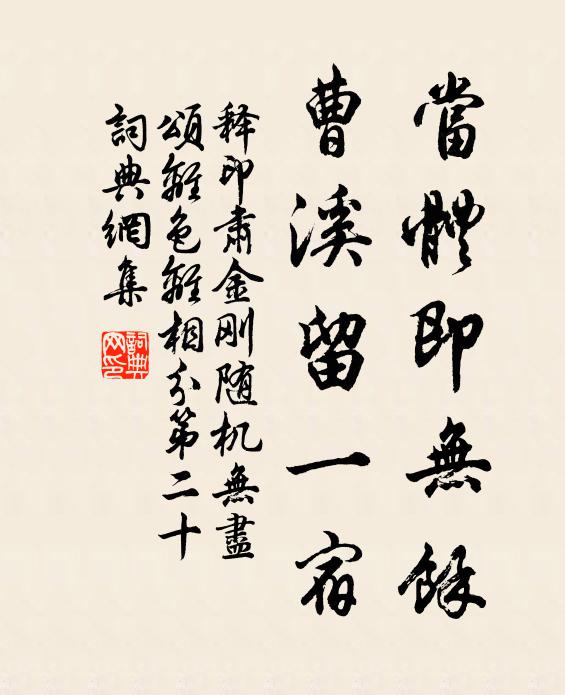 當體即無餘
曹溪留一宿
释印肅金刚随机無盡
頌離色離相分第二十
詞典網集
詞典网印